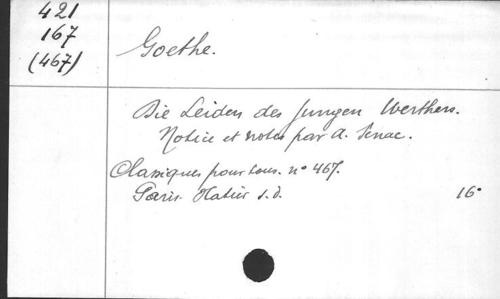 421
167
(467)
Goethe.
Die Leiden des jungen Werthers.
Notice et notes par A. Senac.
Classiques pour tous. n° 467.
Paris Hatier s.d. 16°